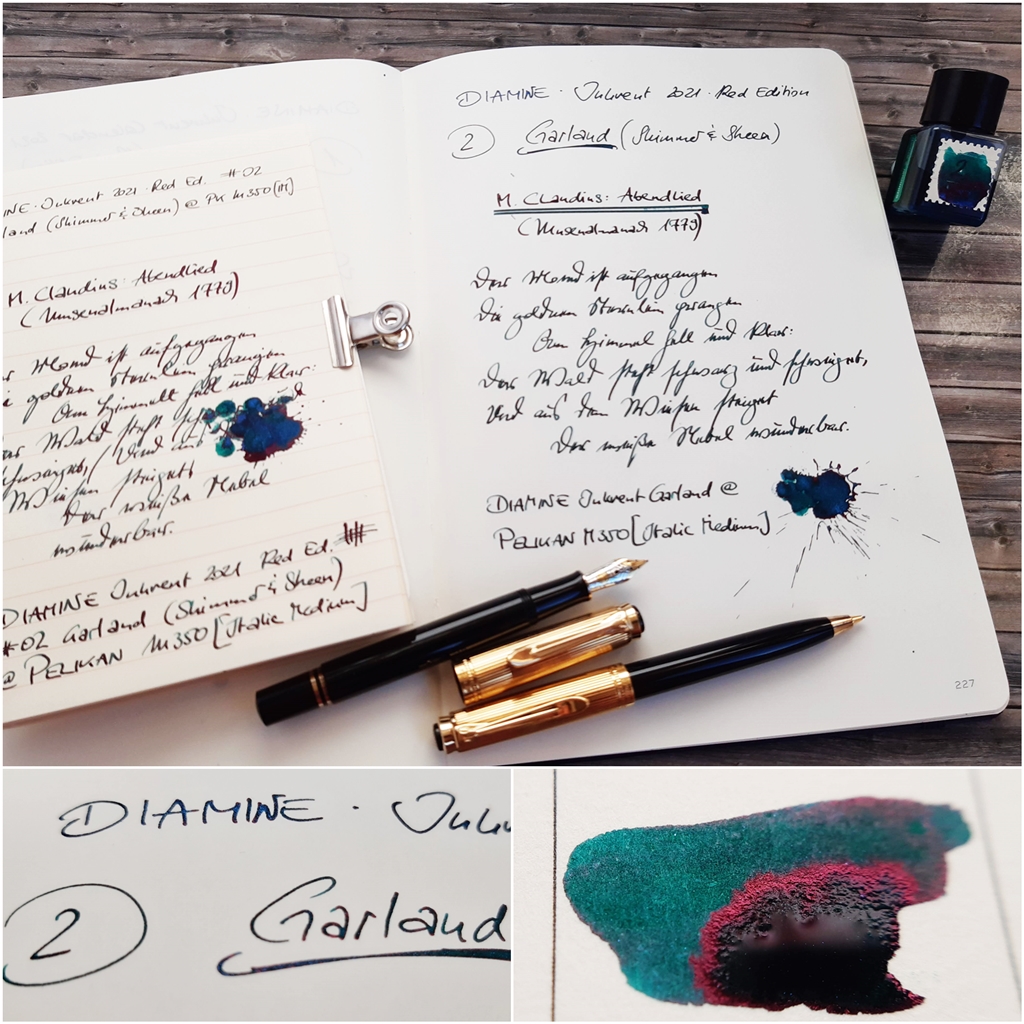 INE · Inkvent 2021 · Red Ed. #02
land (Shimmer & Sheen) @ PK M350 [IM]
M. Claudius: Abendlied
(Musenalmanach 1779)
er Mond ist aufgegangen
ie goldnen Sternlein prangen
Am Himmel hell und klar:
er Wald steht
schweiget, / Und aus
Wiesen steiget
Der weiße Nebel
wunderbar.
DIAMINE Inkvent 2021 Red Ed.
#02 Garland (Shimmer & Sheen)
@ PELIKAN M350 [Italic Medium]
DIAMINE · Inkvent 2021 · Red Edition
2 Garland (Shimmer & Sheen)
M. Claudius: Abendlied
(Musenalmanach 1779)
Der Mond ist aufgegangen
Die goldnen Sternlein prangen
Am Himmel hell und klar:
Der Wald steht schwarz und schweiget,
Und aus den Wiesen steiget
Der weiße Nebel wunderbar.
DIAMINE Inkvent Garland @
PELIKAN M350 [Italic Medium]
227
2
DIAMINE · Inkv
2 Garland